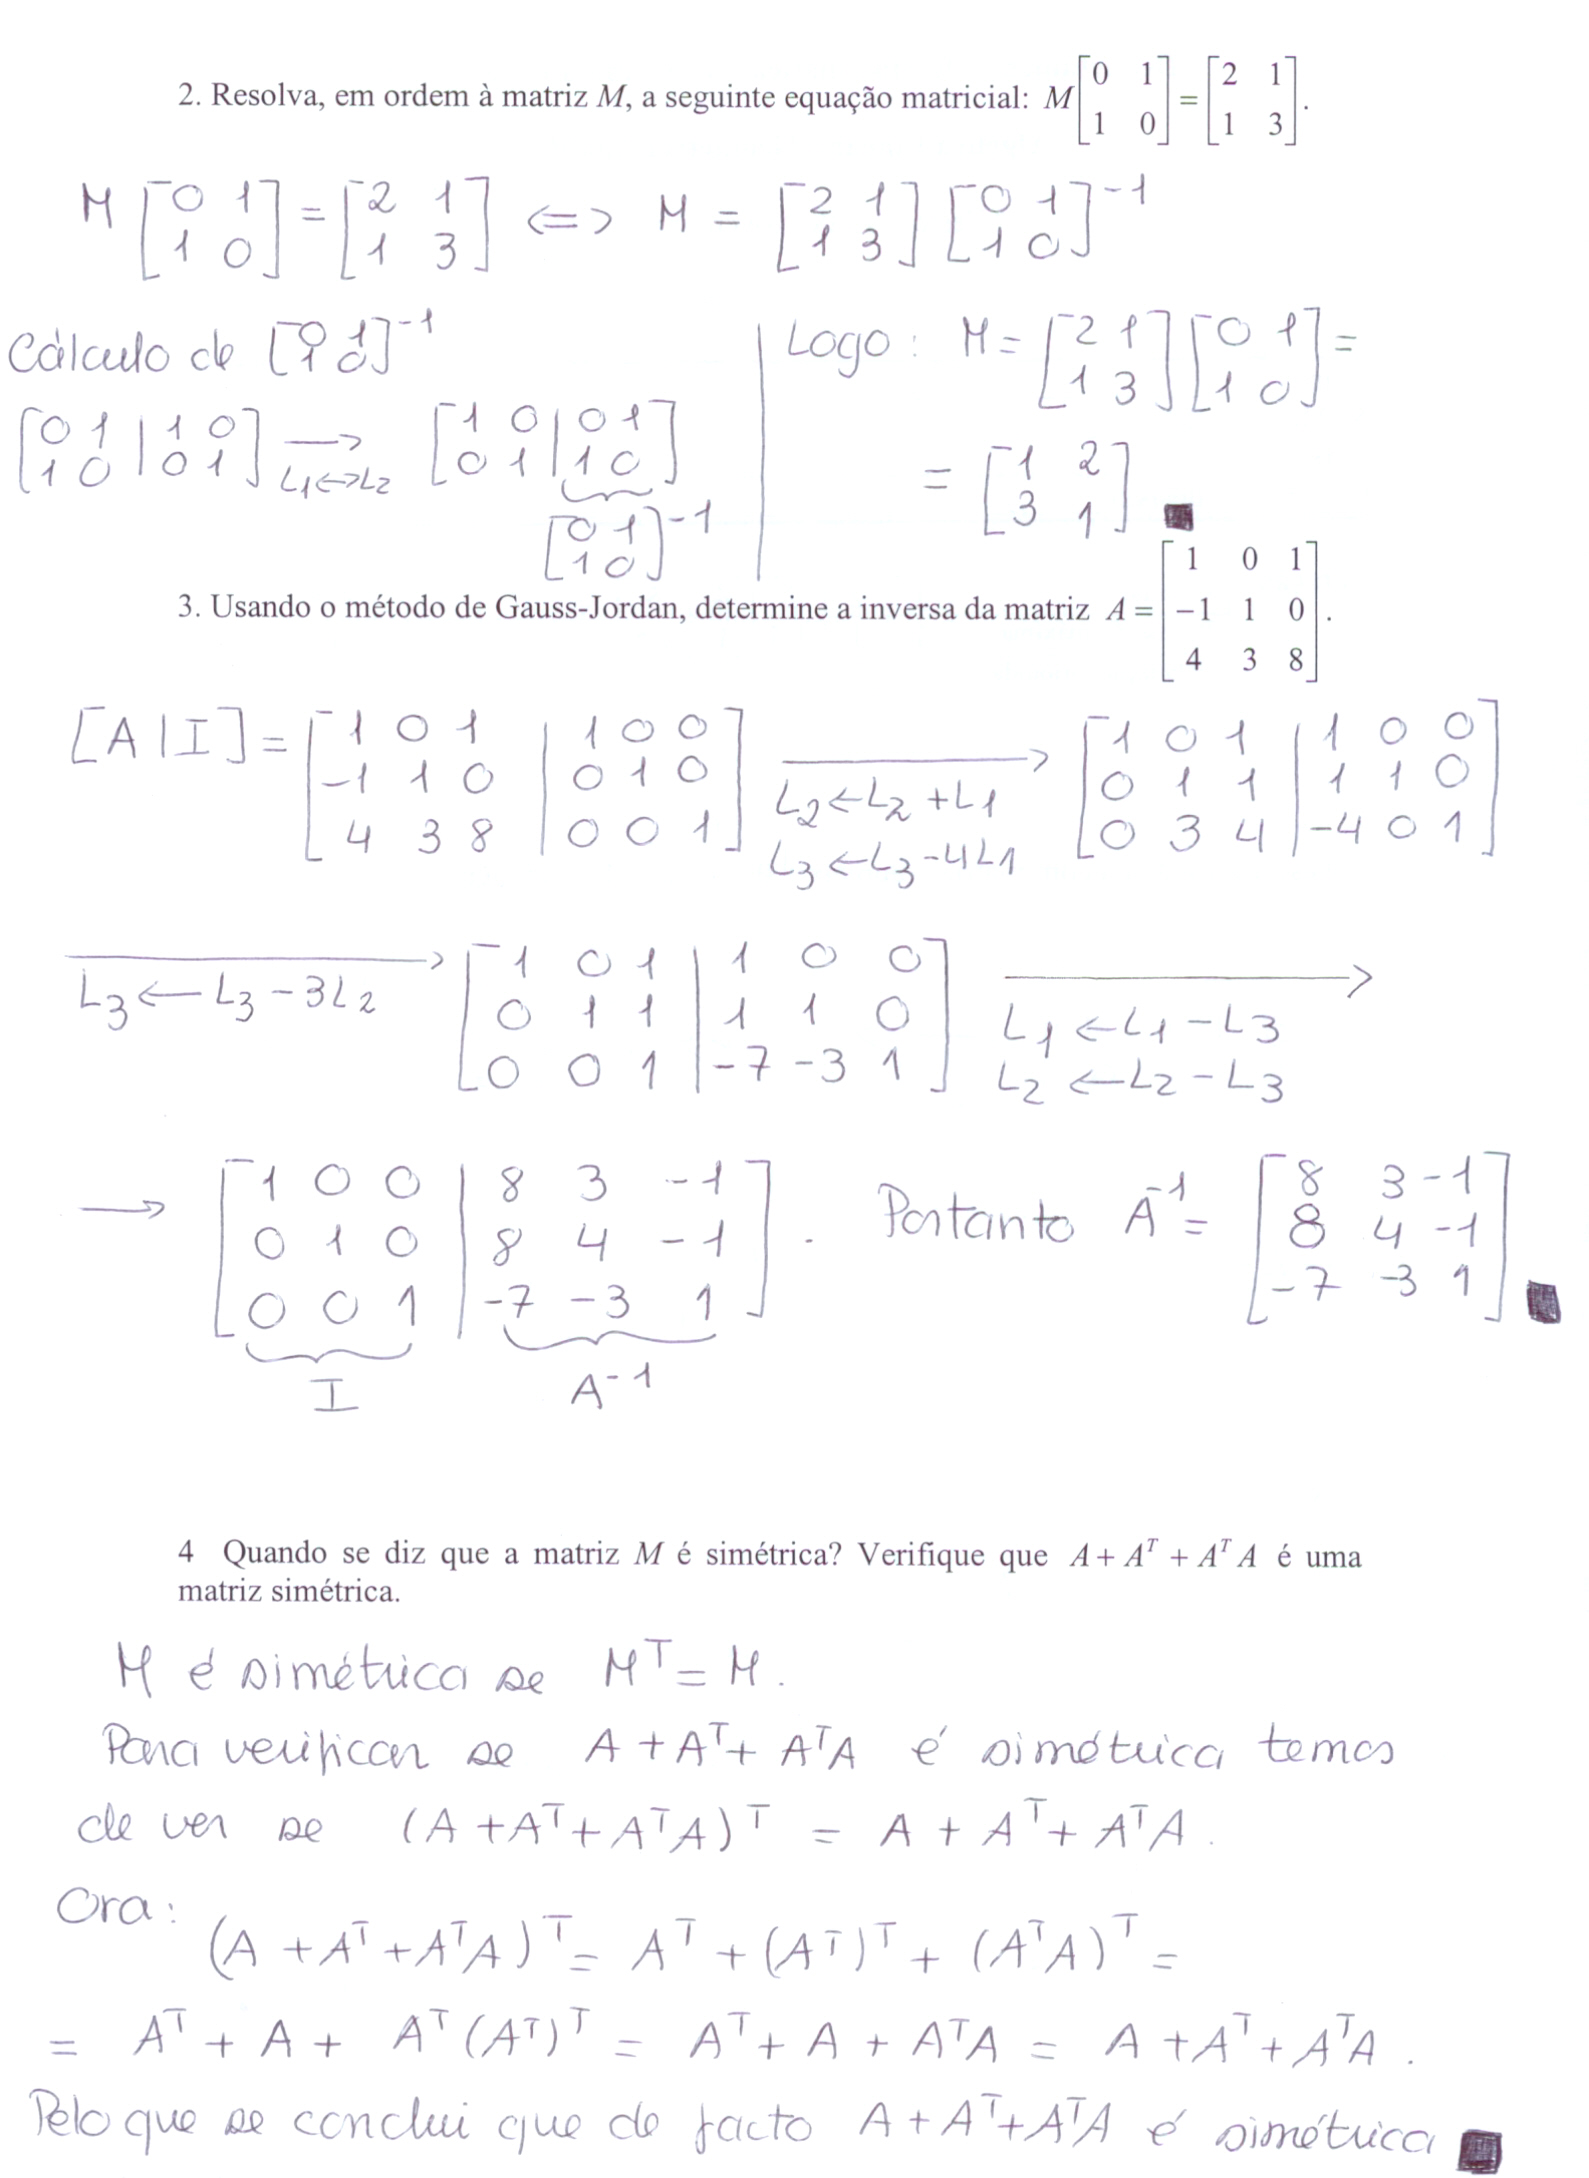 2. Resolva, em ordem à matriz M, a seguinte equação matricial: M [0 1; 1 0] = [2 1; 1 3].
M [0 1; 1 0] = [2 1; 1 3] <=> M = [2 1; 1 3] [0 1; 1 0]^-1
Cálculo de [0 1; 1 0]^-1
[0 1 | 1 0; 1 0 | 0 1] → L1↔L2 [1 0 | 0 1; 0 1 | 1 0]
[0 1; 1 0]^-1
Logo: M = [2 1; 1 3] [0 1; 1 0] =
= [1 2; 3 1]
3. Usando o método de Gauss-Jordan, determine a inversa da matriz A = [1 0 1; −1 1 0; 4 3 8].
[A | I] = [1 0 1 | 1 0 0; -1 1 0 | 0 1 0; 4 3 8 | 0 0 1] → L2←L2+L1 L3←L3-4L1 [1 0 1 | 1 0 0; 0 1 1 | 1 1 0; 0 3 4 | -4 0 1]
→ L3←L3-3L2 [1 0 1 | 1 0 0; 0 1 1 | 1 1 0; 0 0 1 | -7 -3 1] → L1←L1-L3 L2←L2-L3
→ [1 0 0 | 8 3 -1; 0 1 0 | 8 4 -1; 0 0 1 | -7 -3 1]. Portanto A^-1 = [8 3 -1; 8 4 -1; -7 -3 1]
I A^-1
4 Quando se diz que a matriz M é simétrica? Verifique que A + A^T + A^T A é uma
matriz simétrica.
M é simétrica se M^T = M.
Para verificar se A + A^T + A^T A é simétrica temos
de ver se (A + A^T + A^T A)^T = A + A^T + A^T A.
Ora:
(A + A^T + A^T A)^T = A^T + (A^T)^T + (A^T A)^T =
= A^T + A + A^T (A^T)^T = A^T + A + A^T A = A + A^T + A^T A.
Pelo que se conclui que de facto A + A^T + A^T A é simétrica